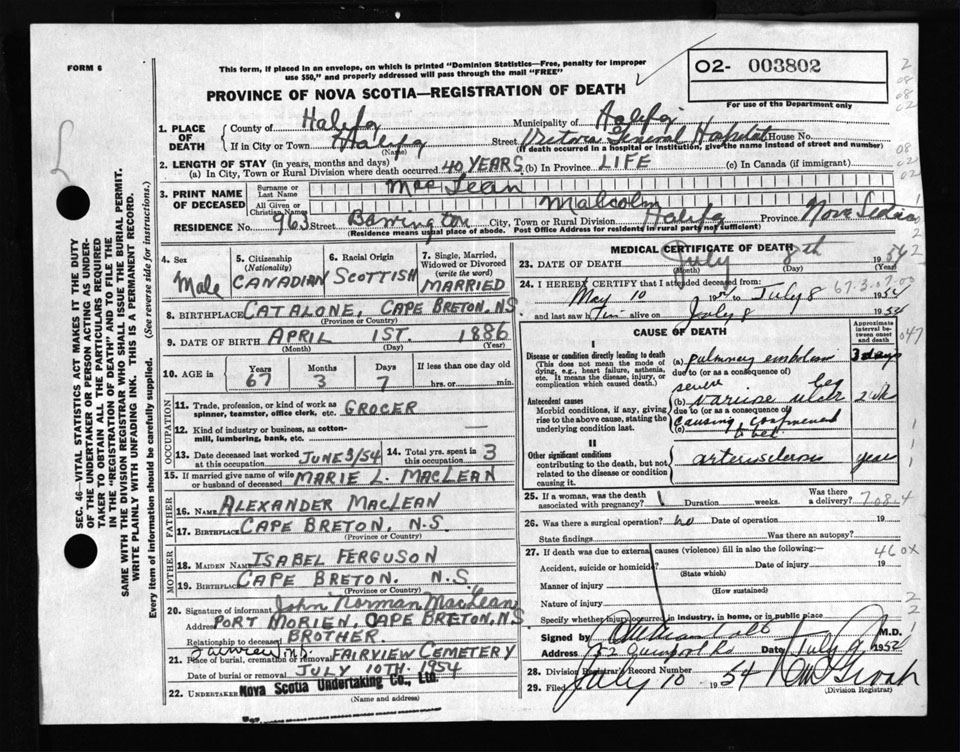 FORM 6
This form, if placed in an envelope, on which is printed "Dominion Statistics—Free, penalty for improper
use $50," and properly addressed will pass through the mail "FREE"
02- 003802
For use of the Department only
PROVINCE OF NOVA SCOTIA—REGISTRATION OF DEATH
1. PLACE OF DEATH
County of Halifax Municipality of Halifax
If in City or Town Halifax (Name) Street Victoria General Hospital House No.
(If death occurred in a hospital or institution, give the name instead of street and number)
2. LENGTH OF STAY (in years, months and days)
(a) In City, Town or Rural Division where death occurred 40 YEARS (b) In Province LIFE (c) In Canada (if immigrant)
3. PRINT NAME OF DECEASED
Surname or Last Name MacLean
All Given or Christian Names Malcolm
RESIDENCE No. 963 Street Barrington City, Town or Rural Division Halifax Province Nova Scotia
(Residence means usual place of abode. Post Office Address for residents in rural parts not sufficient)
4. Sex Male
5. Citizenship (Nationality) CANADIAN
6. Racial Origin SCOTTISH
7. Single, Married, Widowed or Divorced (write the word) MARRIED
8. BIRTHPLACE CATALONE, CAPE BRETON, NS
(Province or Country)
9. DATE OF BIRTH APRIL 1ST. 1886
(Month) (Day) (Year)
10. AGE in Years 67 Months 3 Days 7 If less than one day hrs. or min.
OCCUPATION
11. Trade, profession, or kind of work as spinner, teamster, office clerk, etc. GROCER
12. Kind of industry or business, as cotton-mill, lumbering, bank, etc. —
13. Date deceased last worked at this occupation JUNE 3/54
14. Total yrs. spent in this occupation 3
15. If married give name of wife or husband of deceased MARIE L. MACLEAN
FATHER
16. NAME ALEXANDER MACLEAN
17. BIRTHPLACE CAPE BRETON, N.S.
(Province or Country)
MOTHER
18. MAIDEN NAME ISABEL FERGUSON
19. BIRTHPLACE CAPE BRETON. N.S.
(Province or Country)
20. Signature of informant John Norman MacLean
Address PORT MORIEN, CAPE BRETON, NS
Relationship to deceased BROTHER.
21. Place of burial, cremation or removal FAIRVIEW CEMETERY
Date of burial or removal JULY 10TH. 1954
22. UNDERTAKER Nova Scotia Undertaking Co., Ltd.
(Name and address)
MEDICAL CERTIFICATE OF DEATH
23. DATE OF DEATH July 8th 19
(Month) (Day) (Year)
24. I HEREBY CERTIFY that I attended deceased from:
May 10 1954 to July 8 1954
and last saw him alive on July 8 1954
CAUSE OF DEATH
Approximate interval between onset and death
I
Disease or condition directly leading to death
(This does not mean the mode of dying, e.g., heart failure, asthenia, etc. It means the disease, injury, or complication which caused death.)
(a) pulmonary embolism 3 days
due to (or as a consequence of)
Antecedent causes
Morbid conditions, if any, giving rise to the above cause, stating the underlying condition last.
severe
(b) varicose ulcer leg 2 wk
due to (or as a consequence of)
(c) causing confinement
to bed
II
Other significant conditions
contributing to the death, but not related to the disease or condition causing it.
arteriosclerosis years
25. If a woman, was the death associated with pregnancy? Duration weeks. Was there a delivery?
26. Was there a surgical operation? no Date of operation 19
State findings Was there an autopsy?
27. If death was due to external causes (violence) fill in also the following:—
Accident, suicide or homicide? Date of injury 19
(State which)
Manner of injury
(How sustained)
Nature of injury
Specify whether injury occurred in industry, in home, or in public place
Signed by M.D.
Address Quinpool Rd Date July 9 1954
28. Division Registrar's Record Number
29. Filed July 10 1954
(Division Registrar)
SEC. 46—VITAL STATISTICS ACT MAKES IT THE DUTY
OF THE UNDERTAKER OR PERSON ACTING AS UNDER-
TAKER TO OBTAIN ALL THE PARTICULARS REQUIRED
IN THE "REGISTRATION OF DEATH" AND TO FILE THE
SAME WITH THE DIVISION REGISTRAR WHO SHALL ISSUE THE BURIAL PERMIT.
WRITE PLAINLY WITH UNFADING INK. THIS IS A PERMANENT RECORD.
Every item of information should be carefully supplied. (See reverse side for instructions.)